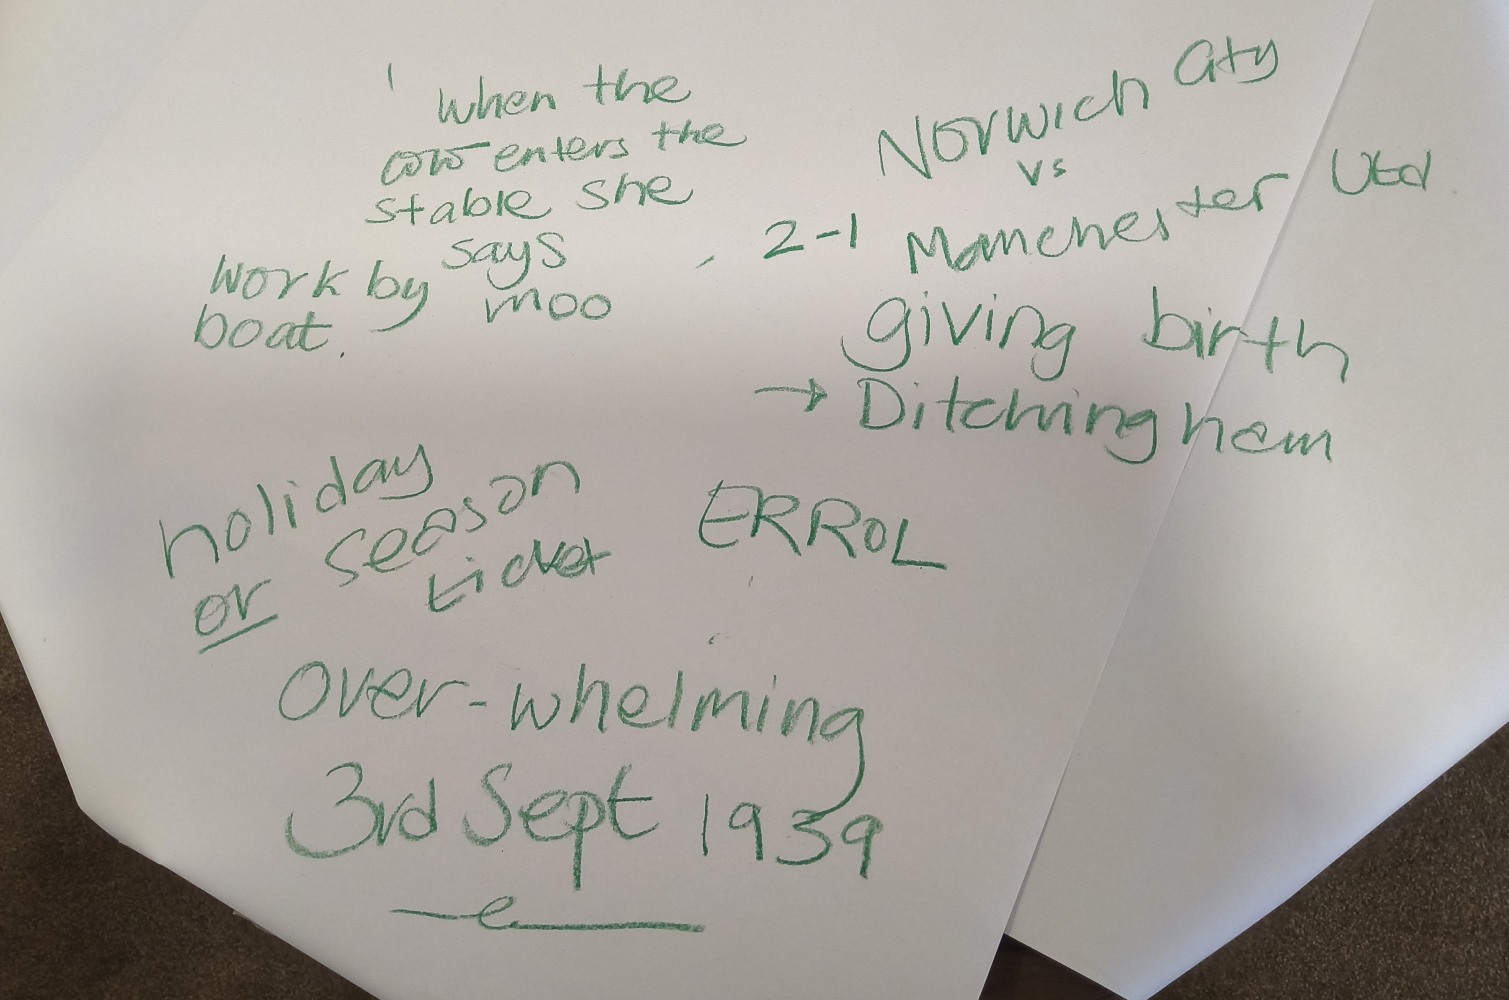 ' when the
cow enters the
stable she
says
moo
work by
boat.
Norwich City
vs
2-1 Manchester Utd
giving birth
→ Ditchingham
holiday
or season
ticket
ERROL
Over-whelming
3rd Sept 1939